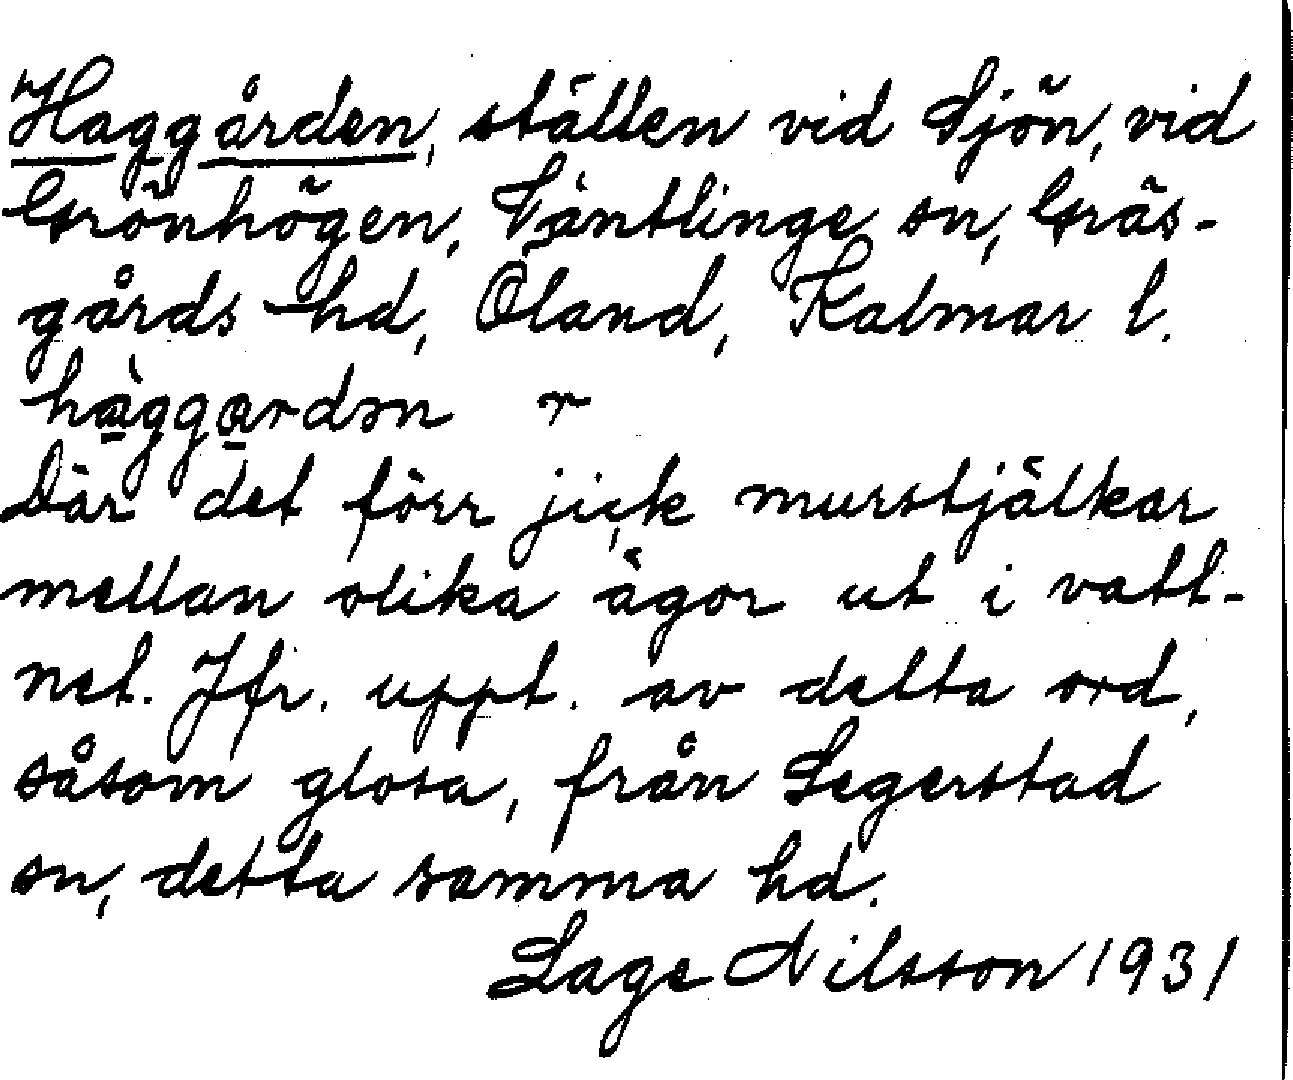 Haggården, ställen vid Sjön, vid
Grönhögen, Väntlinge sn, Gräs-
gårds hd, Öland, Kalmar l.
hàggardən r
Där det förr jick murstjälkar
mellan olika ägor ut i vatt-
net. Jfr. uppt. av detta ord,
såsom glosa, från Segerstad
sn, detta samma hd.
Sage Nilsson 1931